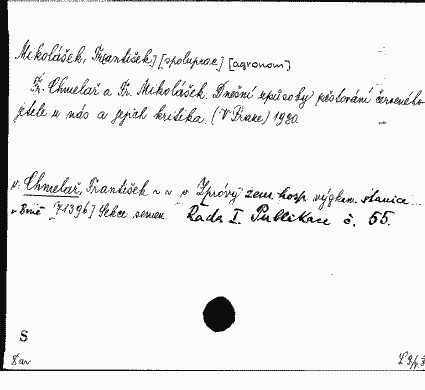 Mikolášek, František] [spoluprac] [agronom]
Fr. Chmelař a Fr. Mikolášek. Dnešní způsoby pěstování červeného
jetele u nás a jejich kritika. (V Praze)
v. Chmelař, František ~ ~ v Zprávy zem. hosp. výzkum. stanice...
v Brně [71396] Sekce semen. Řada I. Publikace č. 55.
S